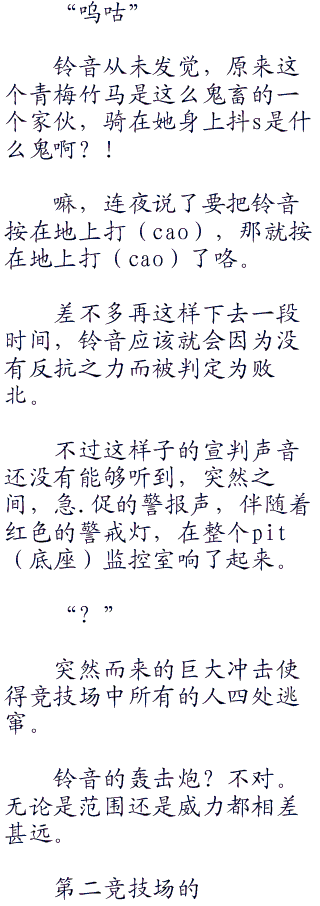 “呜咕”
铃音从未发觉，原来这
个青梅竹马是这么鬼畜的一
个家伙，骑在她身上抖s是什
么鬼啊？！
嘛，连夜说了要把铃音
按在地上打（cao），那就按
在地上打（cao）了咯。
差不多再这样下去一段
时间，铃音应该就会因为没
有反抗之力而被判定为败
北。
不过这样子的宣判声音
还没有能够听到，突然之
间，急.促的警报声，伴随着
红色的警戒灯，在整个pit
（底座）监控室响了起来。
“？”
突然而来的巨大冲击使
得竞技场中所有的人四处逃
窜。
铃音的轰击炮？不对。
无论是范围还是威力都相差
甚远。
第二竞技场的